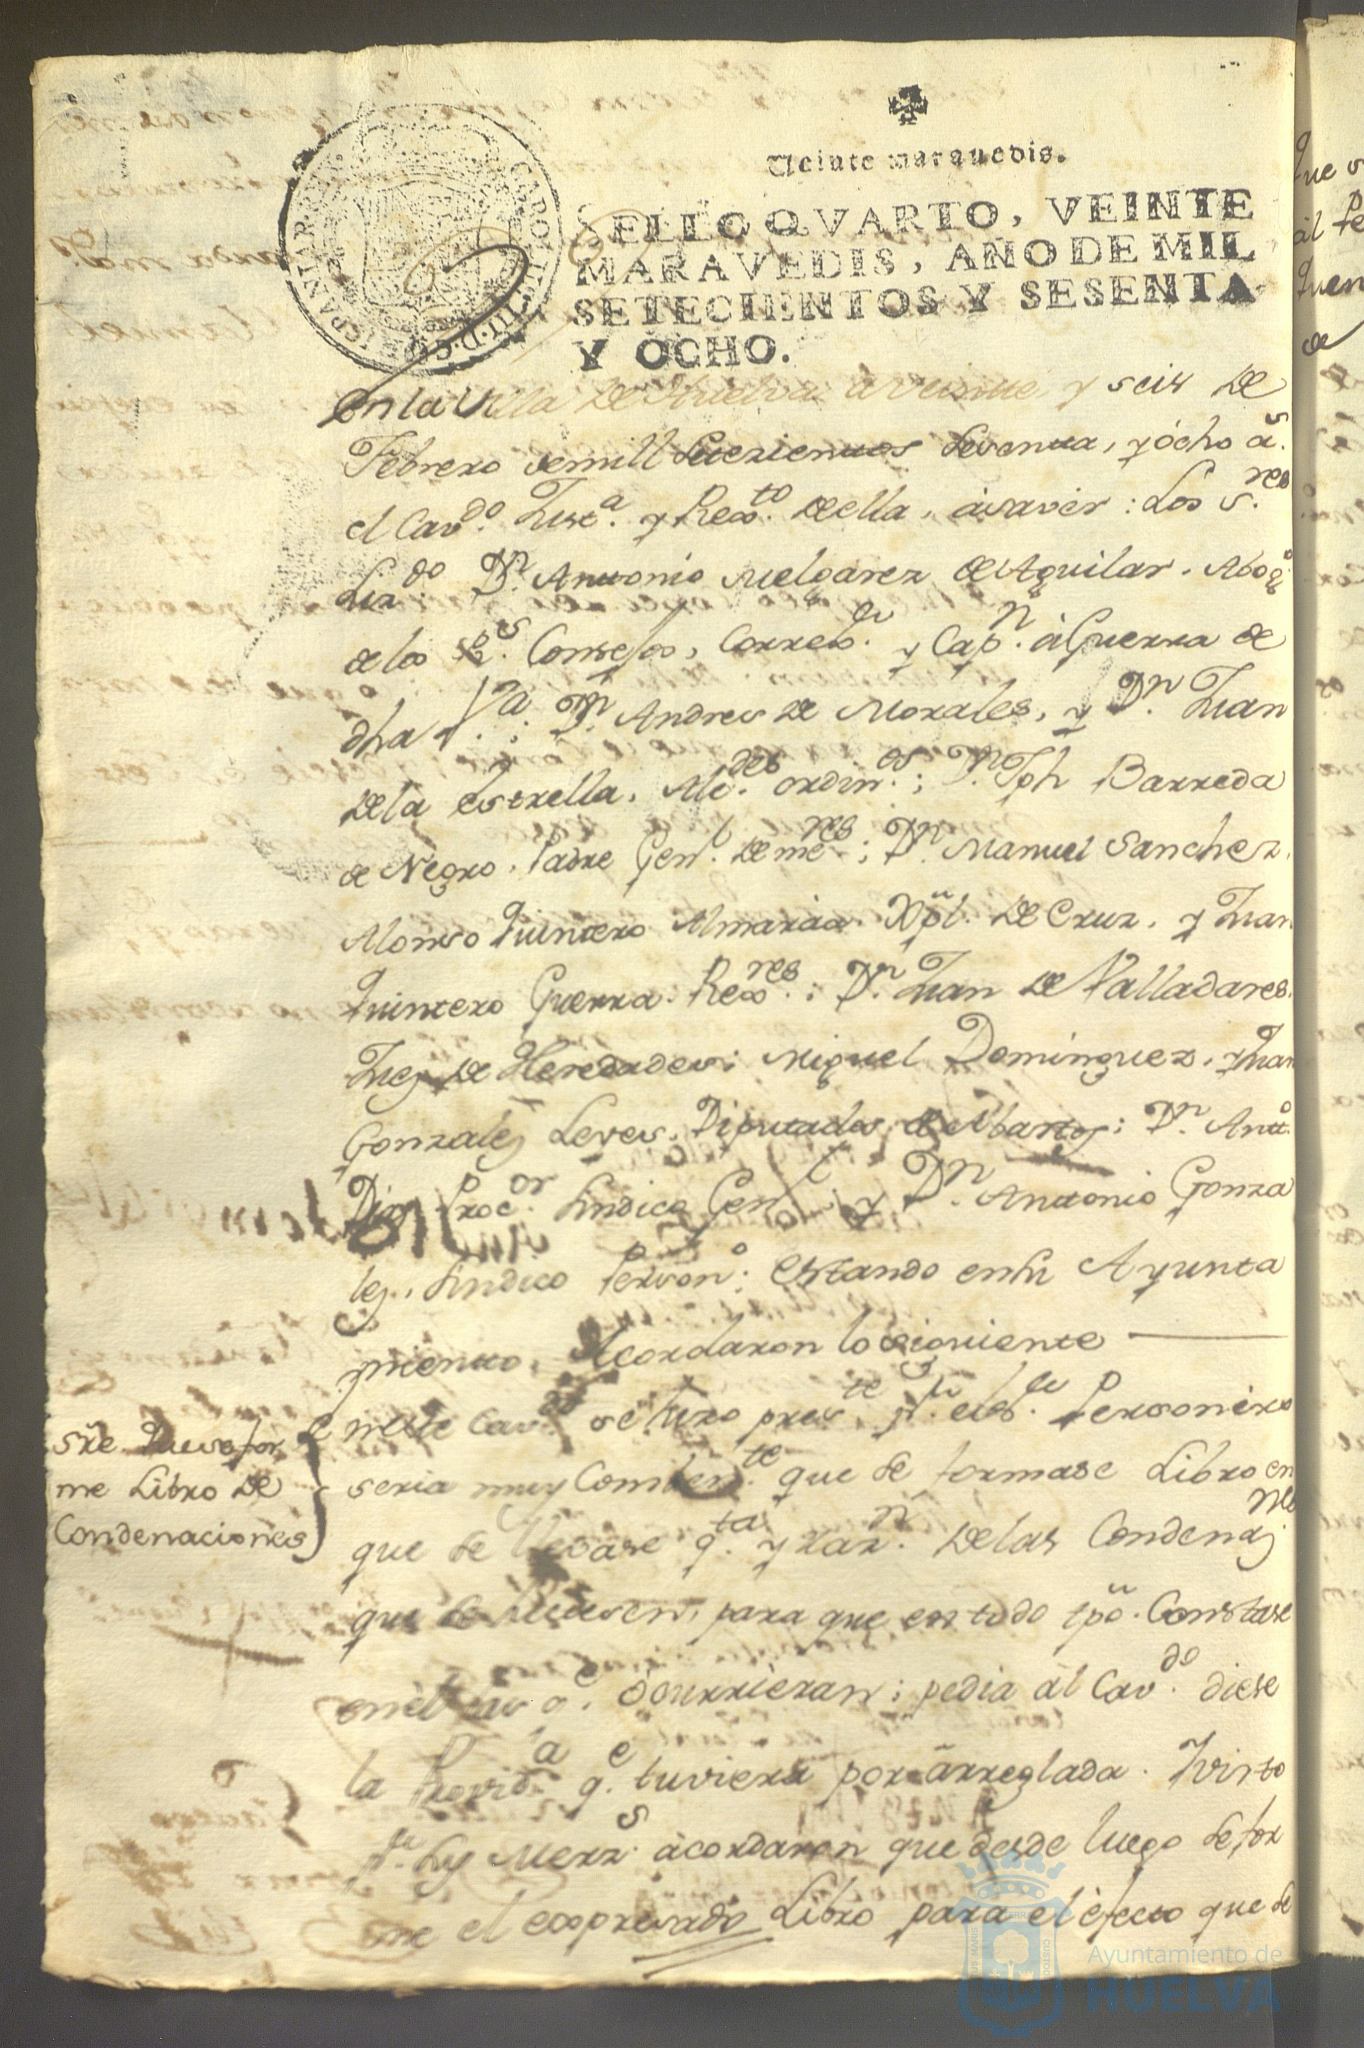 Veinte marauedis.
SELLO QVARTO, VEINTE
MARAVEDIS, AÑO DE MIL
SETECIENTOS Y SESENTA
Y OCHO.
En la Villa de Huelva a veinte y seis de
Febrero de mill setecientos sesenta, y ócho a.s
el Cav.do Just.a y Rex.to de ella, ásaver: Los S.res
Liz.do D.n Antonio Melgarez de Aguilar, Abog.o
de los R.s Consejos, Correx.or y Cap.n á Guerra de
dha V.a; D.n Andres de Morales, y D.n Juan
de la Estrella, Alc.des ordin.os; D.n Jph Barreda
de Negro, Padre Gen.l de me.res; D.n Manuel Sanchez,
Alonso Quintero Almarias, Xptl. de Cruz, y Juan
Quintero Guerra, Rex.res; D.n Juan de Valladares,
Juez de Heredades; Miguel Dominguez, y Juan
Gonzalez Leves, Diputados de Abastos; D.n Ant.o
Diaz Proc.or Sindico Gen.l y D.n Antonio Gonza
lez, Sindico Person.o; Estando en su Ayunta
miento, Acordaron lo siguiente
Sre. que se for
me Libro de
Condenaciones
En este Cav.do se hizo pres.te p.r el S.or Personero
seria muy Comben.te que se formase Libro en
que se llevase q.ta y raz.n de las Condenaz.nes
que se hiciesen, para que en todo tpo. Constase
en el las q.e ócurrieran; pedia al Cav.do diese
la Provid.a q.e tuviera por arreglada. Y visto
p.r sus Merz.s ácordaron que desde luego se for
me el expresado Libro para el éfecto que se
Ayuntamiento de
HUELVA